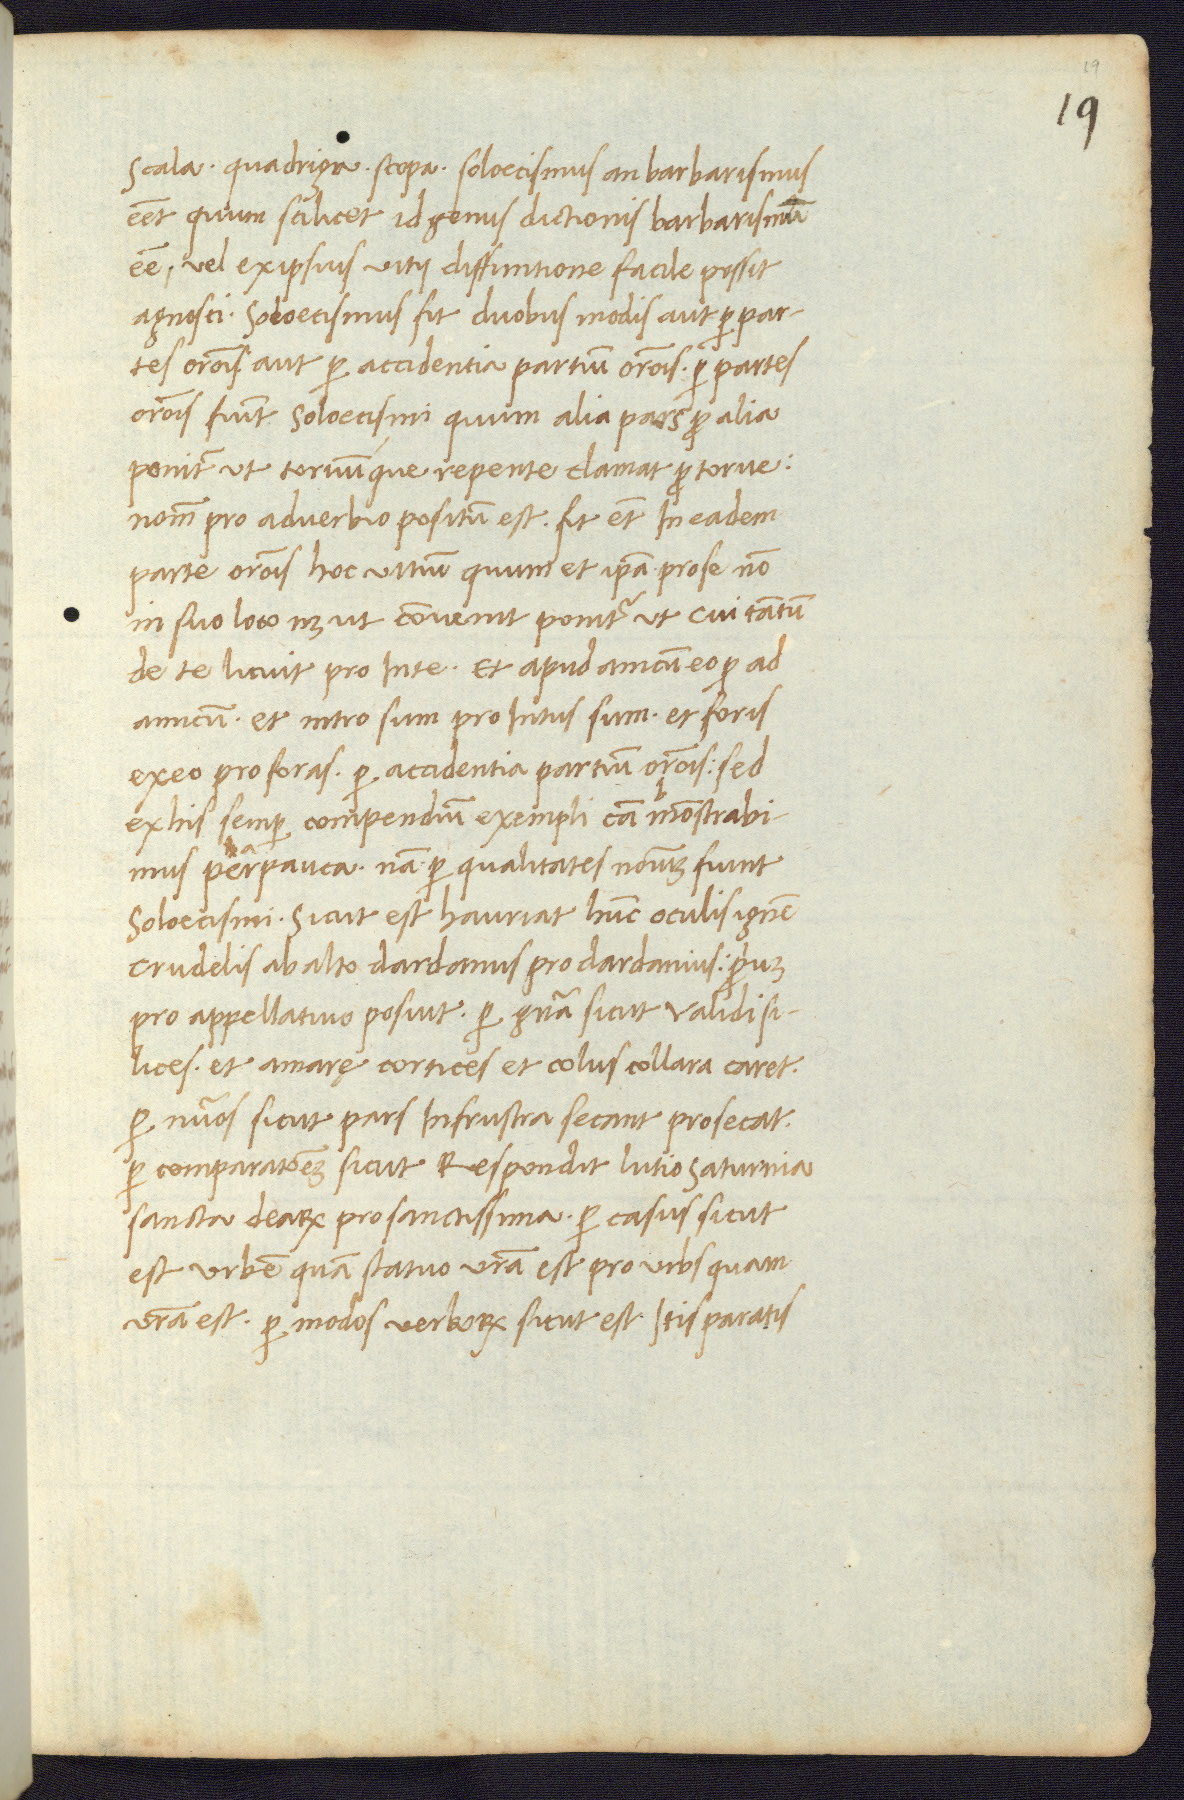 19
19
scala. quadriga. scopa. soloecismus an barbarismus
eēt quum scilicet id genus dictionis barbarismū
eē, vel ex ipsius vitij diffinitione facile possit
agnosci. Soloecismus fit duobus modis aut p̱ par-
tes orōis aut p̱ accidentia partiū orōis. p̱ partes
orōis fiūt Soloecismi quum alia pars ꝓ alia
ponit᷑ ut torvūque repente clamat ꝓ torve:
nom̄ pro adverbio positū est. fit et̄ In eadem
parte orōis hoc vitiū quum et ip̄a pro se nō
in suo loco nꝫ ut cōvenit ponit᷑ ut cui tātū
de te licuit pro Inte. Et apud amicū eo ꝓ ad
amicū. et intro sum pro Intus sum. et foris
exeo pro foras. p̱ accidentia partiū orōis: sed
ex his semp̱ compendiū exempli cā mōstrabi-
mus perpauca. nā p̱ qualitates noīuꝫ fiunt
Soloecismi. Sicut est hauriat hūc oculis ignē
crudelis ab alto dardanus pro dardanius: ꝓpriuꝫ
pro appellativo posuit. p̱ gn̄a sicut validi si-
lices. et amarę cortices et colus collara caret.
p̱ nūos sicut pars In frustra secant pro secat.
p̱ comparatōeꝫ sicut Respondit Iutio Saturnia
sancta dearꝝ pro sanctissima. p̱ casus sicut
est urbē quā statuo vr̄a est pro urbs quam
vr̄a est. p̱ modos verborꝝ sicut est Itis paratis